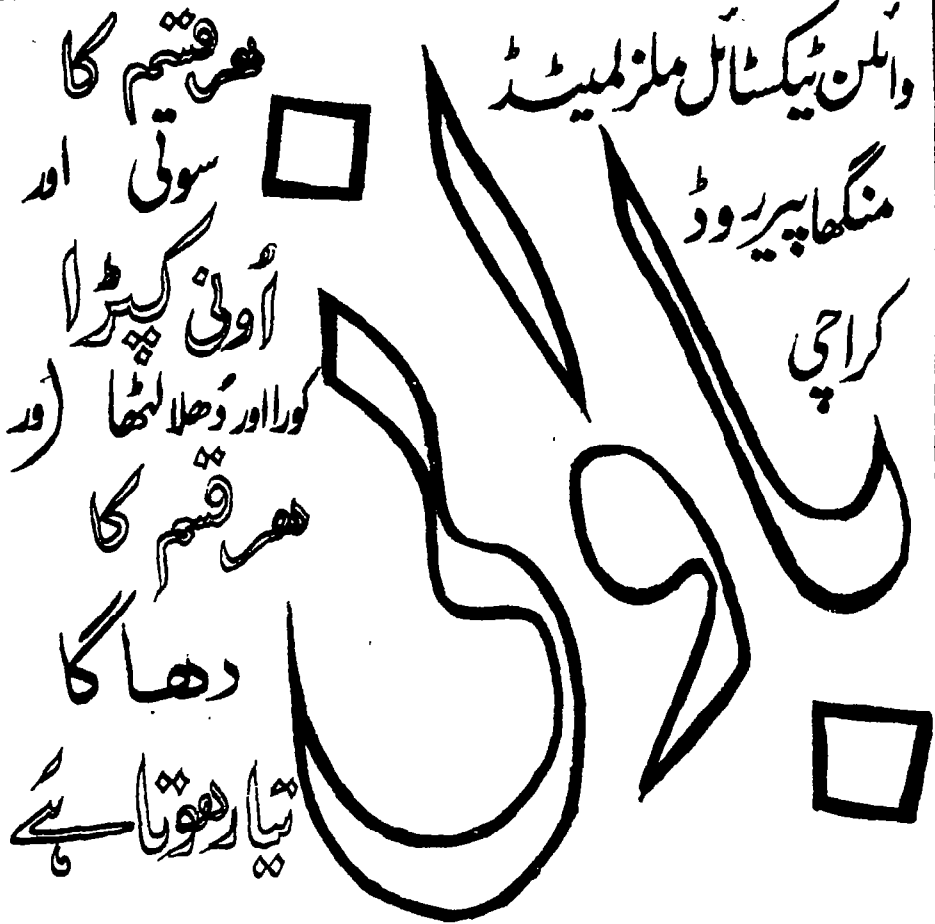 باوانی
وائلن ٹیکسٹائل ملز لمیٹڈ
منگھا پیر روڈ
کراچی
ھر قسم کا
سوتی اور
اُونی کپڑا
کورا اور دُھلا لٹھا اور
ھر قسم کا
دھاگا
تیار ھوتا ہے